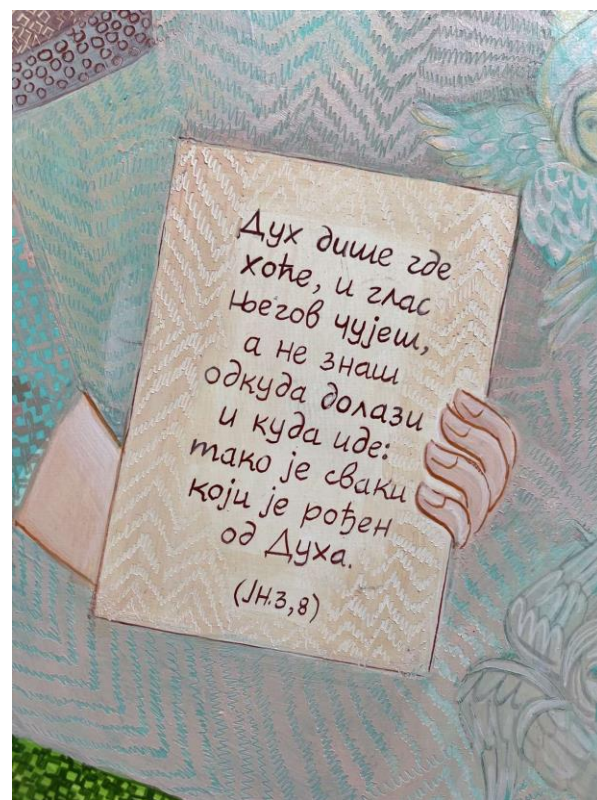 Дух дише где
хоће, и глас
његов чујеш,
а не знаш
одкуда долази
и куда иде:
тако је сваки
који је рођен
од Духа.
(ЈН.3,8)